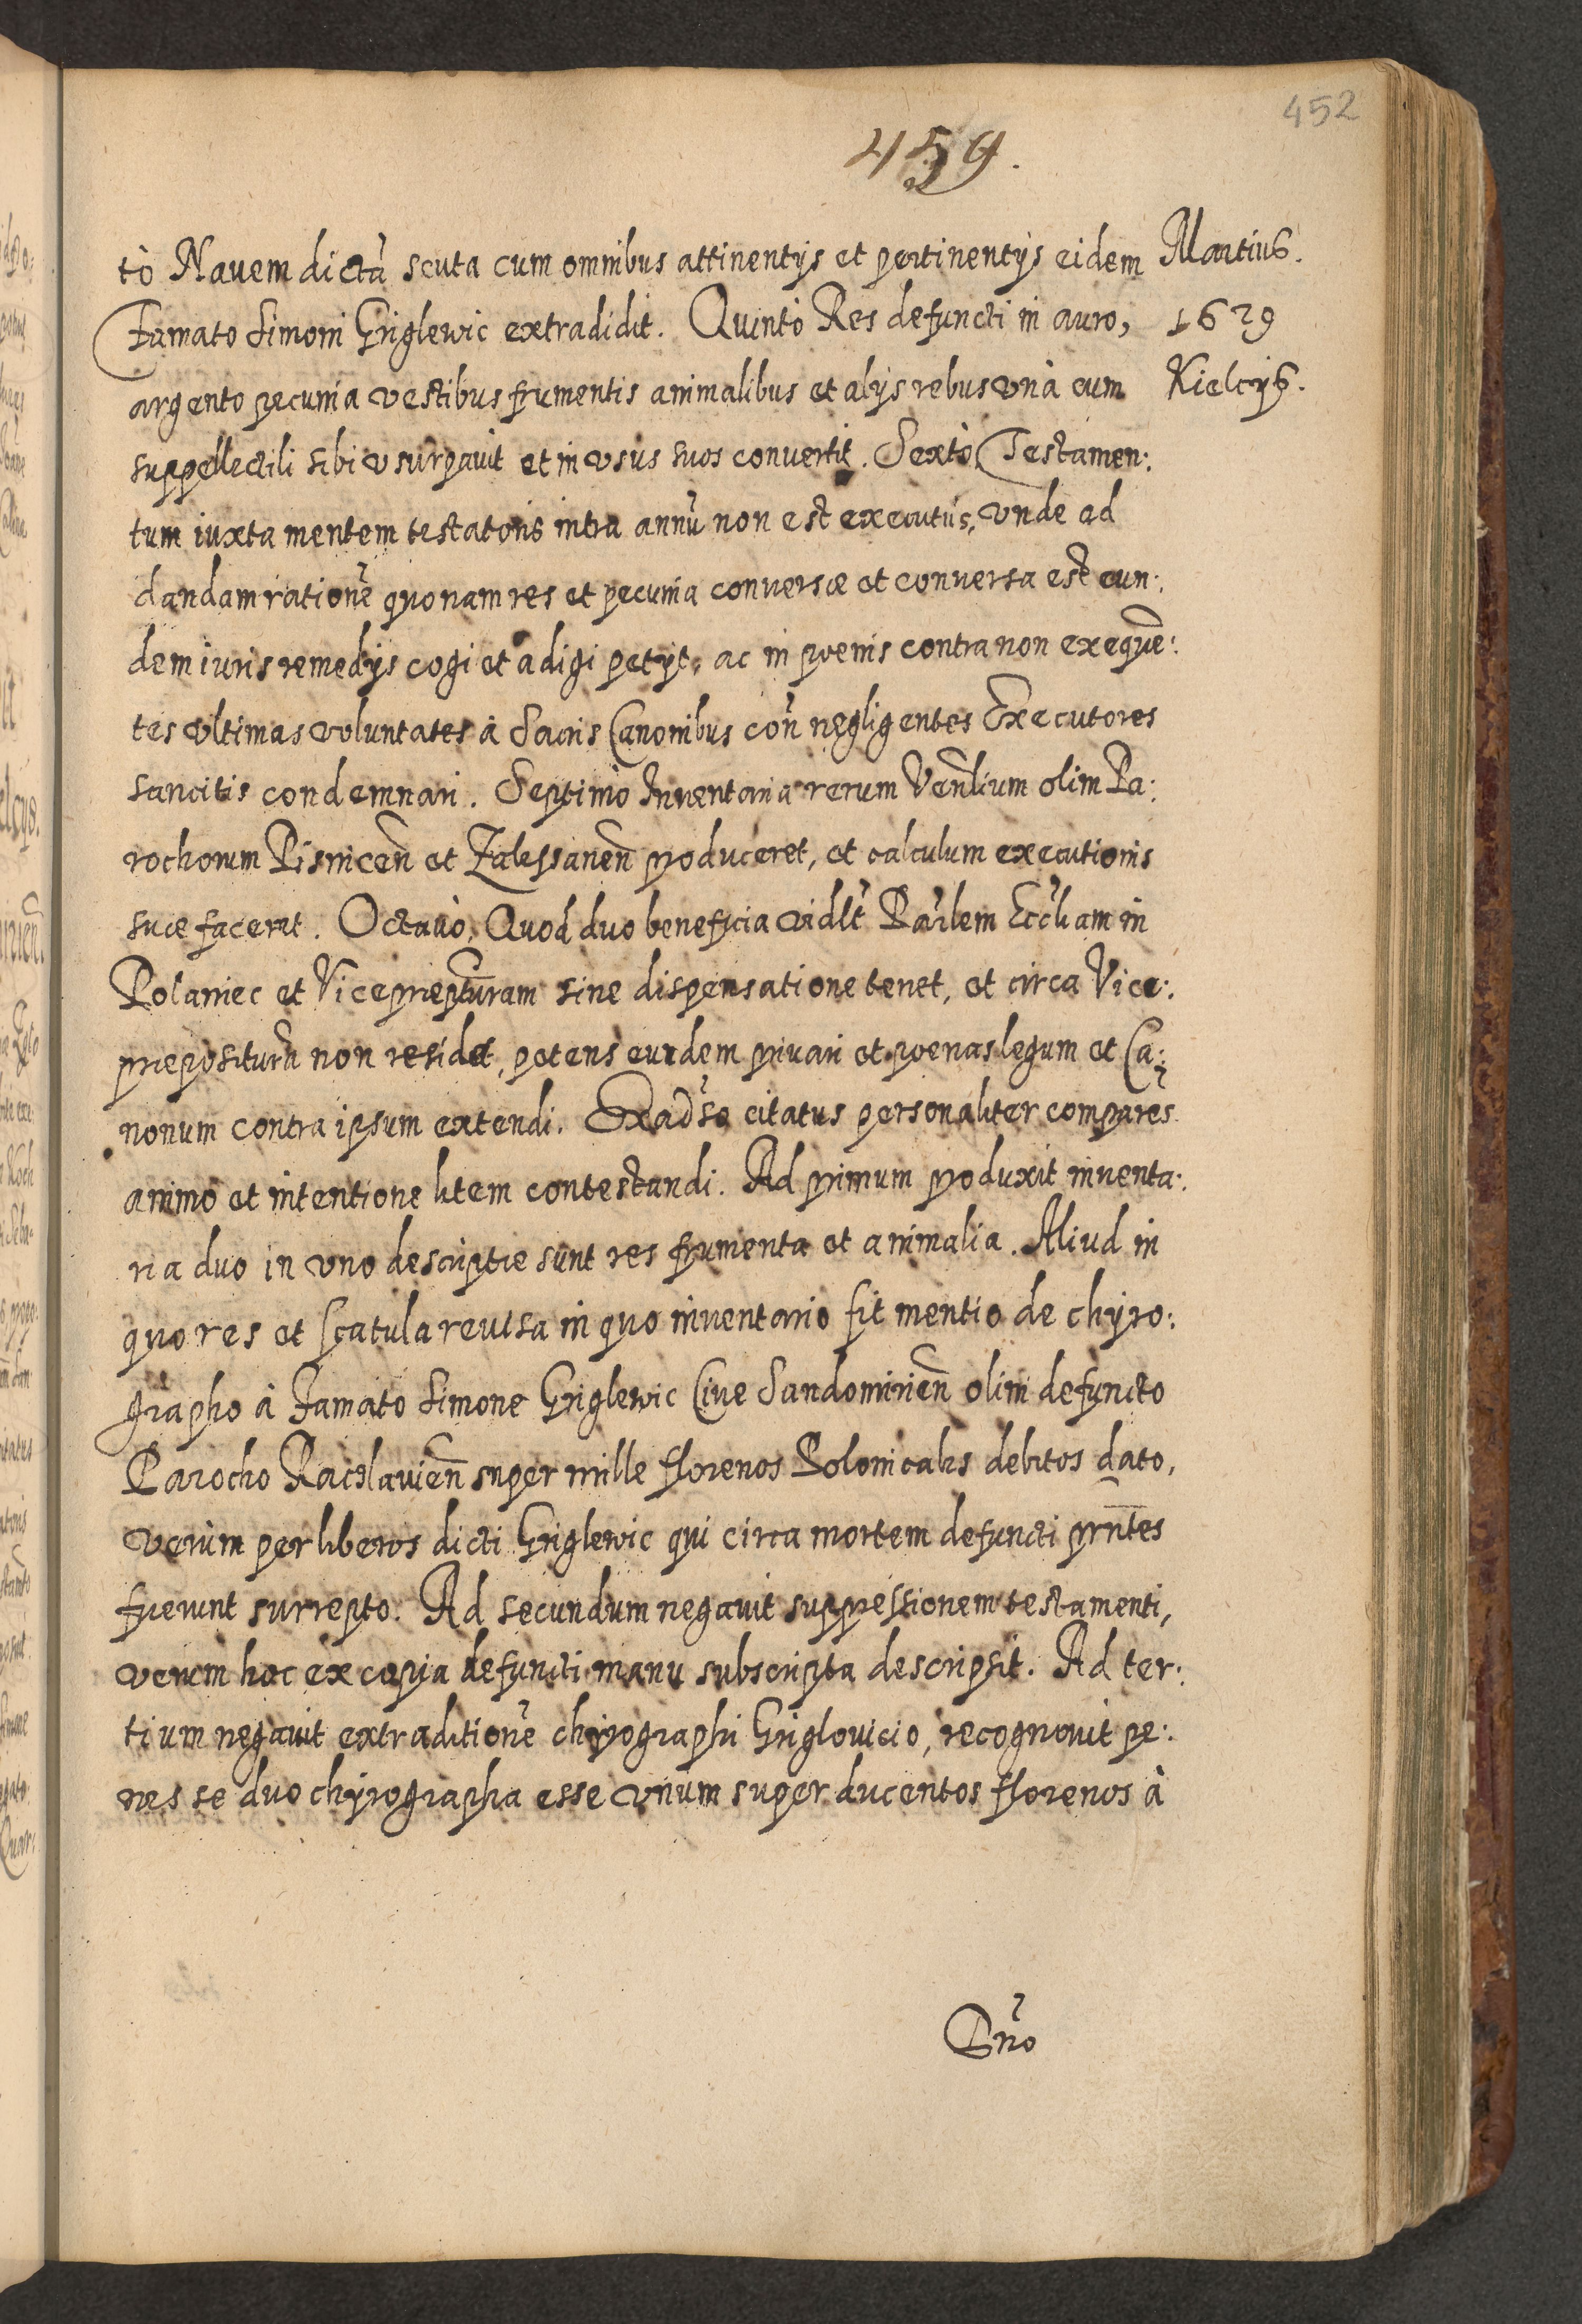 452
459.
tò Nauem dictã scuta cum omnibus attinentÿs et pertinentÿs eidem
Famato Simoni Griglewic extradidit. Quintò Res defuncti in auro,
argento pecunia vestibus frumentis animalibus et alÿs rebus vnà cum
suppellectili sibi vsurpauit et in vsus suos conuertit. Sextò Testamen:
tum iuxta mentem testatoris intra annũ non est executus, vnde ad
dandam rationẽ quonam res et pecunia conversæ et conversa est eun:
dem iuris remedÿs cogi et adigi petÿt, ac in poenis contra non exequẽ:
tes vltimas voluntates à Sacris Canonibus coñ negligentes Executores
sancitis condemnari. Septimò Inuentaria rerum Veñlium olim Pa:
rochorum Pisniceñ et Zalessaneñ produceret, et calculum executionis
suæ faceret. Octauò, Quod duo beneficia vidlt Parlem Ecclam in
Polaniec et Viceprepturam sine dispensatione tenet, et circa Vice:
preposituram non residet, petens eundem priuari et poenas legum et Ca:
nonum contra ipsum extendi. Exadũso citatus personaliter compares
animo et intentione litem contestandi. Ad primum produxit inuenta:
ria duo in vno descriptæ sunt res frumenta et animalia. Aliud in
quo res et scatula reuisa in quo inuentario fit mentio de chÿro:
grapho à Famato Simone Griglewic Ciue Sandomirieñ olim defuncto
Parocho Racslauieñ super mille florenos Polonicalis debitos dato,
verùm per liberos dicti Griglewic qui circa mortem defuncti prñtes
fuerunt surrepto. Ad secundum negauit suppressionem testamenti,
verum hoc ex copia defuncti manu subscripta descripsit. Ad ter:
tium negauit extraditionẽ chÿrographi Griglouicio, recognouit pe:
nes se duo chÿrographa esse vnum super ducentos florenos à
Gño
Martius.
1629
Kielcÿs.